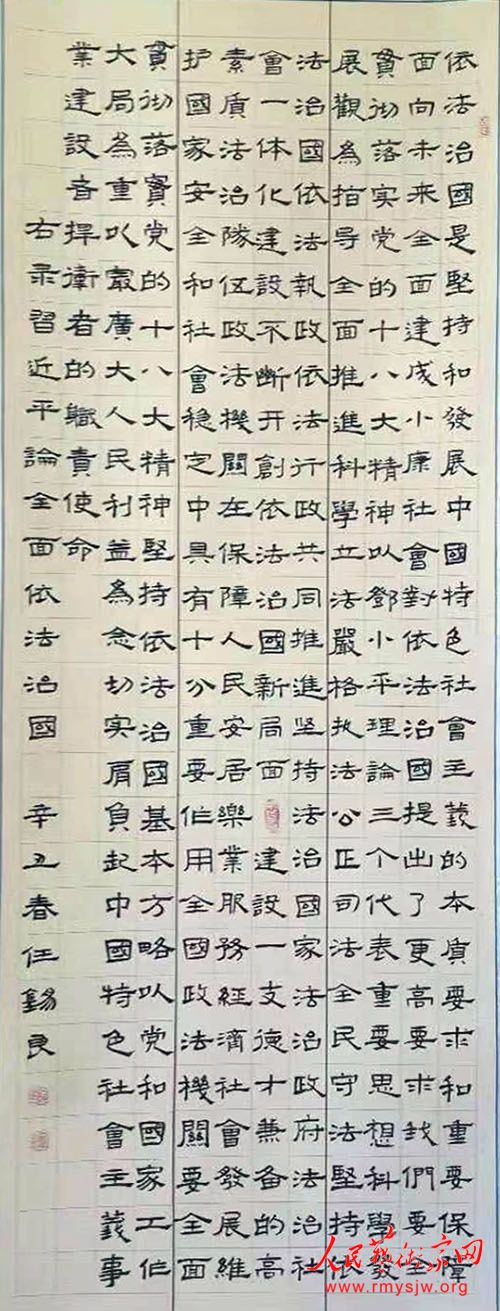 依法治國是堅持和發展中國特色社會主義的本質要求和重要保障
面向未来全面建成小康社會對依法治國提出了更高要求我們要全
貫彻落实党的十八大精神以鄧小平理論三个代表重要思想科學發
展觀為指导全面推進科學立法嚴格执法公正司法全民守法堅持依
法治國依法執政依法行政共同推進坚持法治國家法治政府法治社
會一体化建設不斷开創依法治國新局面建設一支德才兼备的高
素质法治隊伍政法機關在保障人民安居樂業服務經濟社會發展維
护國家安全和社會穩定中具有十分重要作用全國政法機關要全面
貫彻落實党的十八大精神堅持依法治國基本方略以党和國家工作
大局為重以最廣大人民利益為念切实肩負起中國特色社會主義事
業建設者捍衛者的職責使命
右录習近平論全面依法治國 辛丑春任錫良
人民藝術家网
www.rmysjw.org